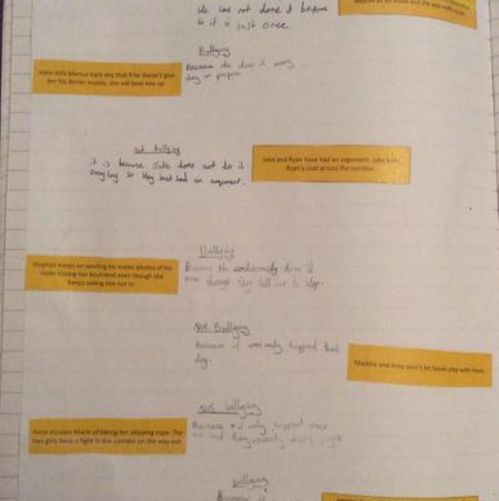 she has not done it before
so it is just once
Bullying
Because she does it every
day on purpose
Katie tells Marcus each day that if he doesn't give
her his dinner money, she will beat him up.
not bullying
it is because Jake does not do it
everyday so they just had an argument.
Jake and Ryan have had an argument. Jake kicks
Ryan's coat across the corridor.
Bullying
Because she continuously does it
even though they tell her to stop.
Stephen keeps on sending his mates photos of his
sister kissing her boyfriend even though she
keeps asking him not to.
Not Bullying
Because it was only happened that
day.
Maddie and Amy won't let Sarah play with them.
not bullying
Because it only happend once
Anna accuses Marie of taking her skipping rope. The
two girls have a fight in the corridor on the way out.
bullying
Because it